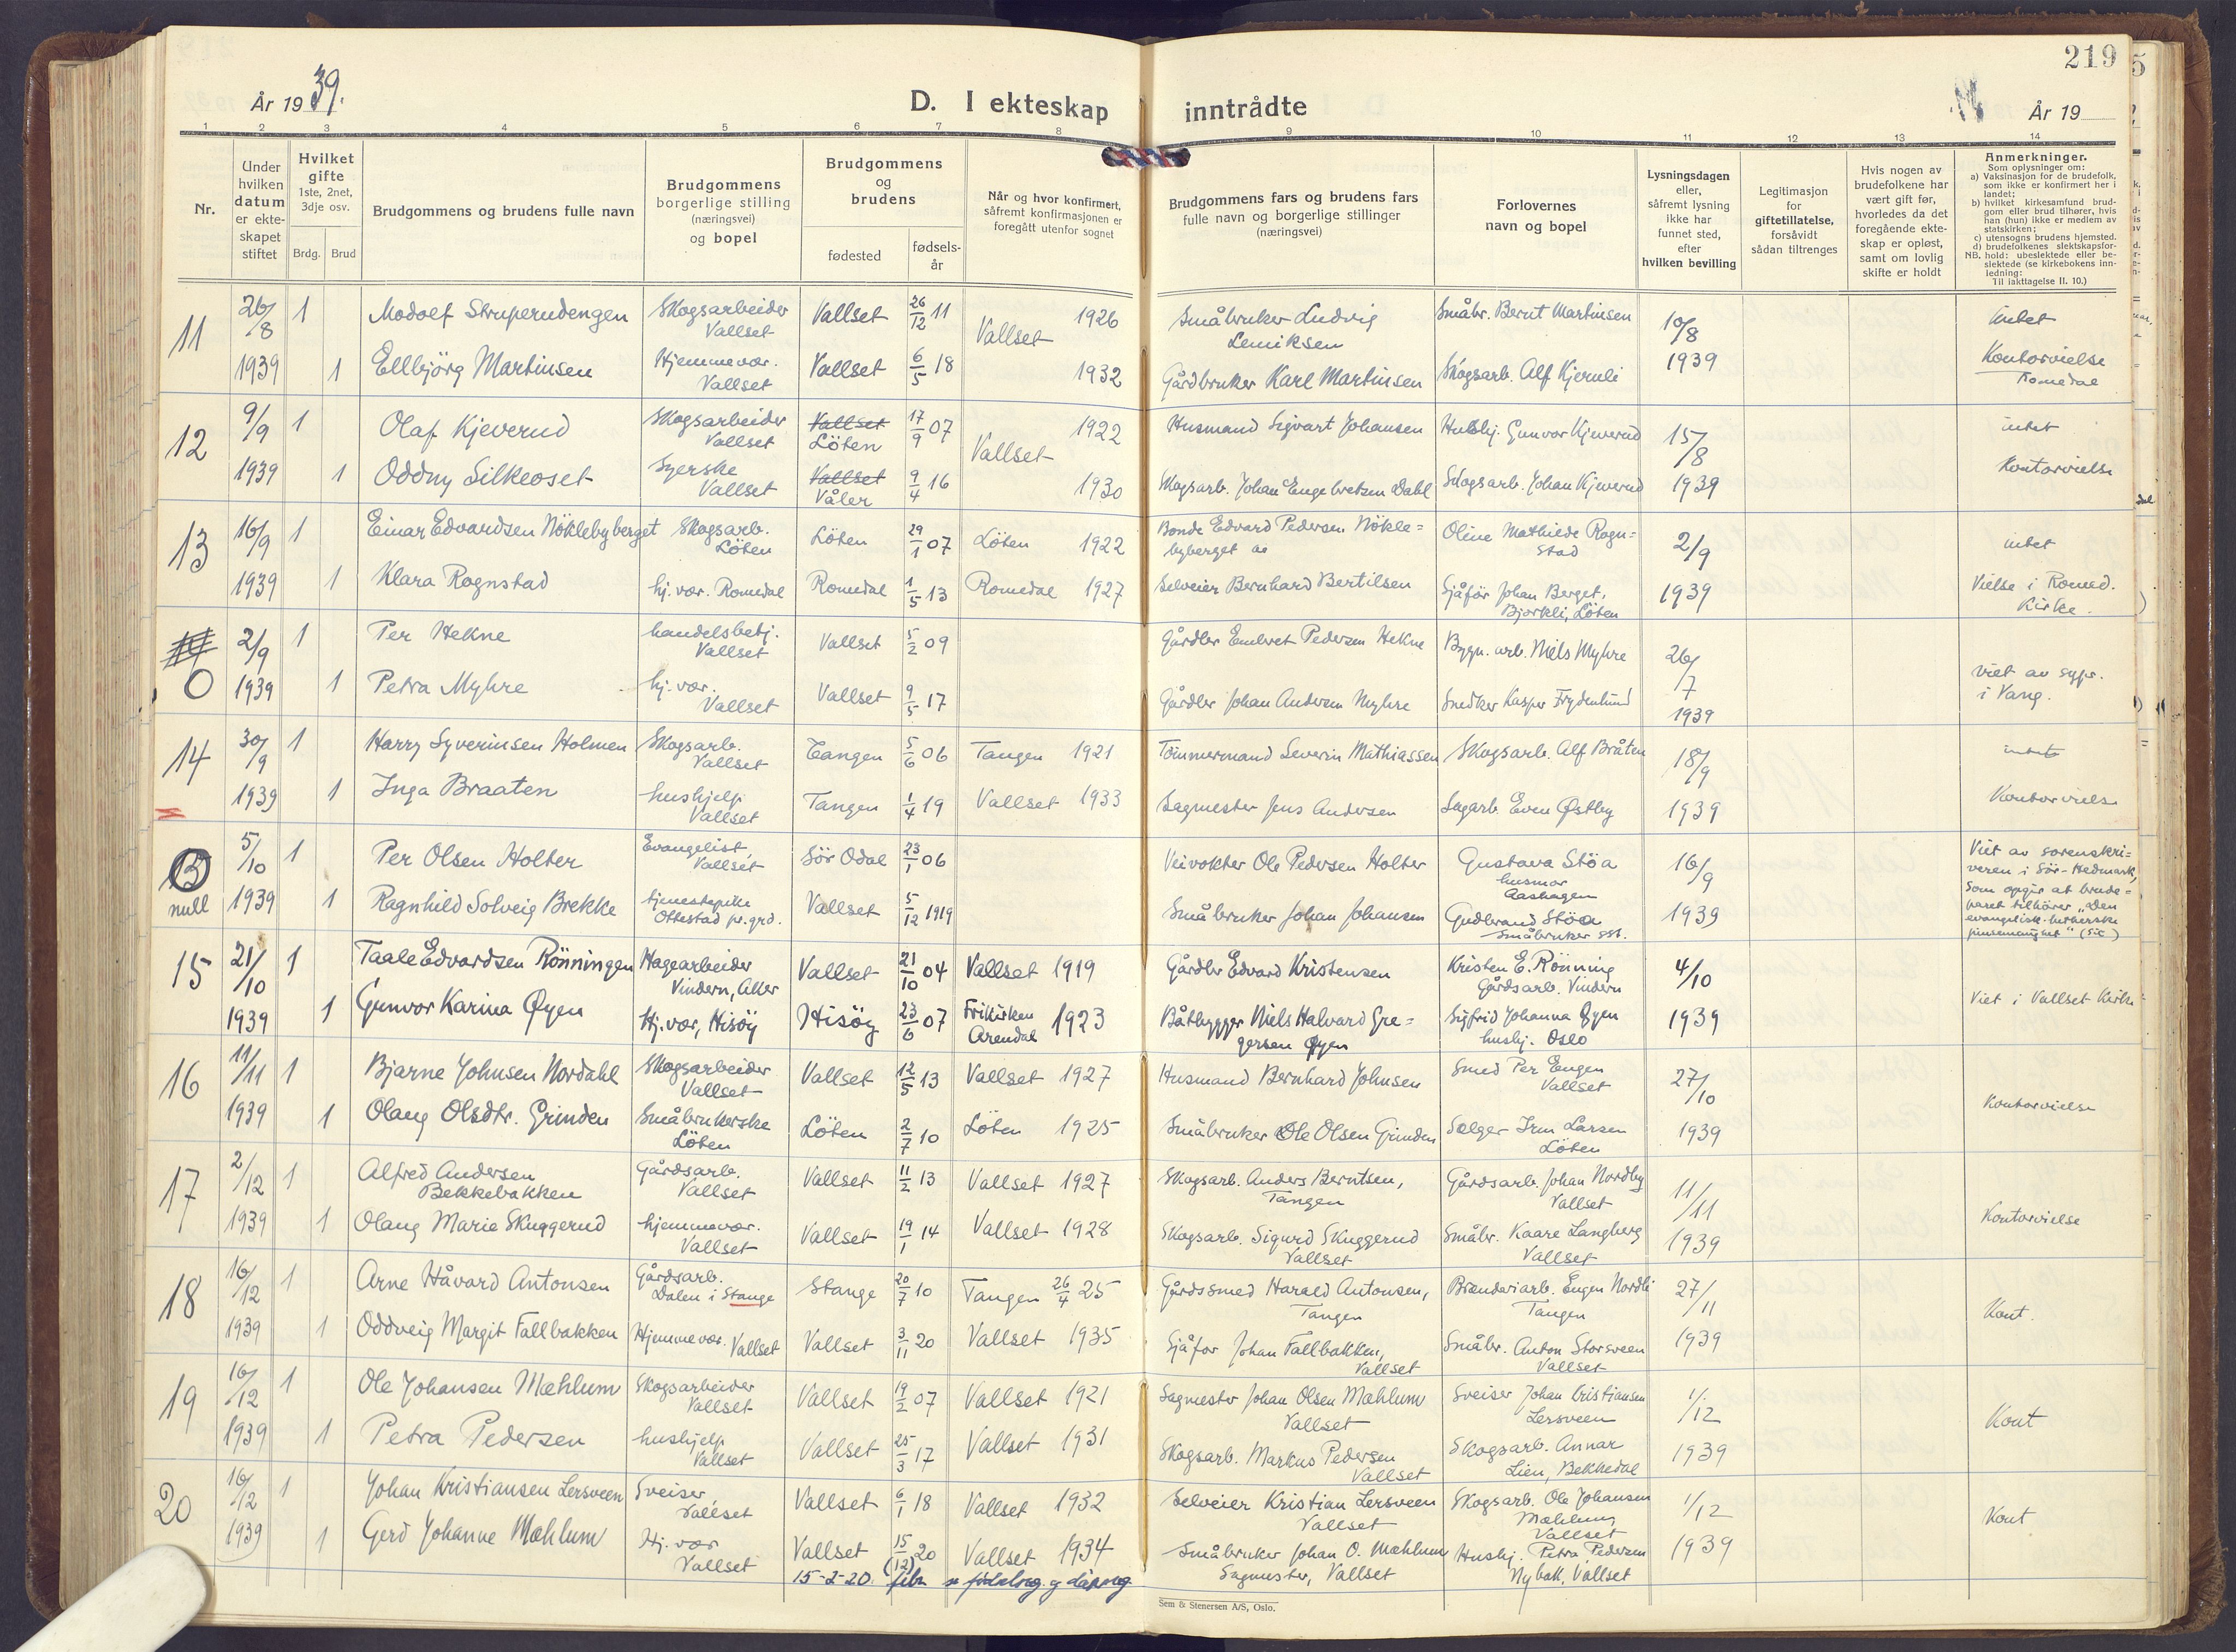 219
År 19 39.
D. I ekteskap inntrådte
År 19
1 2 3 4 5 6 7 8 9 10 11 12 13 14
Nr.
Under
hvilken
datum
er ekte-
skapet
stiftet
Hvilket
gifte
1ste, 2net,
3dje osv.
Brdg. Brud
Brudgommens og brudens fulle navn
Brudgommens
borgerlige stilling
(næringsvei)
og bopel
Brudgommens
og
brudens
fødested
fødsels-
år
Når og hvor konfirmert,
såfremt konfirmasjonen er
foregått utenfor sognet
Brudgommens fars og brudens fars
fulle navn og borgerlige stillinger
(næringsvei)
Forlovernes
navn og bopel
Lysningsdagen
eller,
såfremt lysning
ikke har
funnet sted,
efter
hvilken bevilling
Legitimasjon
for
giftetillatelse,
forsåvidt
sådan tiltrenges
Hvis nogen av
brudefolkene har
vært gift før,
hvorledes da det
foregående ekte-
skap er opløst,
samt om lovlig
skifte er holdt
Anmerkninger.
Som oplysninger om:
a) Vaksinasjon for de brudefolk,
som ikke er konfirmert her i
landet;
b) hvilket kirkesamfund brud-
gom eller brud tilhører, hvis
han (hun) ikke er medlem av
statskirken;
c) utensogns brudens hjemsted.
d) brudefolkenes slektskapsfor-
hold: ubeslektede eller be-
slektede (se kirkebokens inn-
ledning:
NB. Til iakttagelse II. 10.)
11 26/8 1 Modolf Struperudengen Skogsarbeider Vallset Vallset 26/12 11 Vallset 1926 Småbruker Ludvig Småbr. Bernt Martinsen 10/8 intet
1939 1 Ellbjörg Martinsen Hjemmevær. Vallset Vallset 6/5 18 1932 Gårdbruker Karl Martinsen Skogsarb. Alf Kjernli 1939 Kontorvielse Romedal
12 9/9 1 Olaf Kjeverud Skogsarbeider Vallset Vallset Löten 17/9 07 Vallset 1922 Husmand Sigvart Johansen Hushj. Gunvor Kjeverud 15/8 intet
1939 1 Oddny Silkeoset Syerske Vallset Vallset Våler 9/4 16 1930 Skogsarb. Johan Engebretsen Dahl Skogsarb. Johan Kjeverud 1939 Kontorvielse
13 16/9 1 Einar Edvardsen Nöklebyberget Skogsarb. Löten Löten 29/1 07 Löten 1922 Bonde Edvard Pedersen Nökle=byberget Oline Mathilde Rogn=stad 2/9 intet
1939 1 Klara Rognstad hj. vær. Romedal Romedal 1/5 13 Romedal 1927 Selveier Bernhard Bertilsen Sjåför Johan Berget, Bjorkli, Löten 1939 Vielse i Romed. Kirke.
14 2/9 1 Per Hekne handelsbetj. Vallset Vallset 5/2 09 Gårdbr Embret Pedersen Hekne Bygn. arb. Niels Myhre 26/7
0 1939 1 Petra Myhre hj. vær. Vallset Vallset 9/5 17 Gårdbr Johan Andersen Myhre Snedker Kasper Frydenlund 1939 viet av sgpr. i Vang.
14 30/9 1 Harry Syverinsen Holmen Skogsarb. Vallset Tangen 5/6 06 Tangen 1921 Tömmermand Severin Mathiassen Skogsarb. Alf Bråten 18/9 intet
1939 1 Inga Braaten hushjelp Vallset Tangen 1/4 19 Vallset 1933 Sagmester Jens Andersen Sagarb. Even Østby 1939 Kontorvielse
15 5/10 1 Per Olsen Holter Evangelist Vallset Sör Odal 23/1 06 Veivokter Ole Pedersen Holter Gustava Stöa husmor Aashagen 16/9 Viet av sorenskri=veren i Sör-Hedmark,
null 1939 1 Ragnhild Solveig Brekke tjenestepike Ottestad pr. grd. Vallset 5/12 1919 Småbruker Johan Johansen Gudbrand Stöa Småbruker sst. 1939 som opgir at brude=paret tilhörer "Den evangelisk-lutherske pinsemenighet" (sic)
15 21/10 1 Taale Edvardsen Rönningen Hagearbeider Vindern, Aker Vallset 21/10 04 Vallset 1919 Gårdbr Edvard Kristensen Kristen E. Rönning Gårdsarb. Vindern 4/10
1939 1 Gunvor Karina Øyen Hj. vær, Hisöy Hisöy 23/6 07 Frikirken Arendal 1923 Båtbygger Niels Halvard Gre=gersen Øyen Sigfrid Johanna Øyen hushj. Oslo 1939 Viet i Vallset Kirke
16 11/11 1 Bjarne Johnsen Nordahl Skogsarbeider Vallset Vallset 12/5 13 Vallset 1927 Husmand Bernhard Johnsen Smed Per Engen Vallset 27/10
1939 1 Olaug Olsdtr. Grinden Småbrukerske Löten Löten 2/7 10 Löten 1925 Småbruker Ole Olsen Grinden Selger Larsen Löten 1939 Kontorvielse
17 2/12 1 Alfred Andersen Bekkebakken Gårdsarb. Vallset Vallset 11/2 13 Vallset 1927 Skogsarb. Anders Berntsen, Tangen Gårdsarb. Johan Nordby Vallset 11/11
1939 1 Olaug Marie Skuggerud hjemmevær. Vallset Vallset 19/1 14 Vallset 1928 Skogsarb. Sigurd Skuggerud Vallset Småbr. Kaare Langberg Vallset 1939 Kontorvielse
18 16/12 1 Arne Håvard Antonsen Gårdsarb. Dalen i Stange Stange 20/7 10 Tangen 26/4 25 Gårdssmed Harald Antonsen, Tangen Brænderiarb. Eugen Nordli Tangen 27/11
1939 1 Oddveig Margit Fallbakken Hjemmevær. Vallset Vallset 3/11 20 Vallset 1935 Sjåfør Johan Fallbakken, Vallset Småbr. Anton Storsveen Vallset 1939 Kont.
19 16/12 1 Ole Johansen Mæhlum Skogsarbeider Vallset Vallset 19/2 07 Vallset 1921 Sagmester Johan Olsen Mæhlum Vallset Sveiser Johan Cristiansen Lersveen 1/12
1939 1 Petra Pedersen hushjelp Vallset Vallset 25/3 17 Vallset 1931 Skogsarb. Markus Pedersen Vallset Skogsarb. Annar Lien, Bekkedal 1939 Kont
20 16/12 1 Johan Kristiansen Lersveen Sveiser Vallset Vallset 6/1 18 Vallset 1932 Selveier Kristian Lersveen Vallset Skogsarb. Ole Johansen Mæhlum Vallset 1/12
1939 1 Gerd Johanne Mæhlum Hj. vær Vallset Vallset 15/(12) 20 Vallset 1934 Småbruker Johan O. Mæhlum Sagmester, Vallset Hushj. Petra Pedersen Nybak, Vallset 1939 Kont
15-2-20. febr
Sem & Stenersen A/S, Oslo.